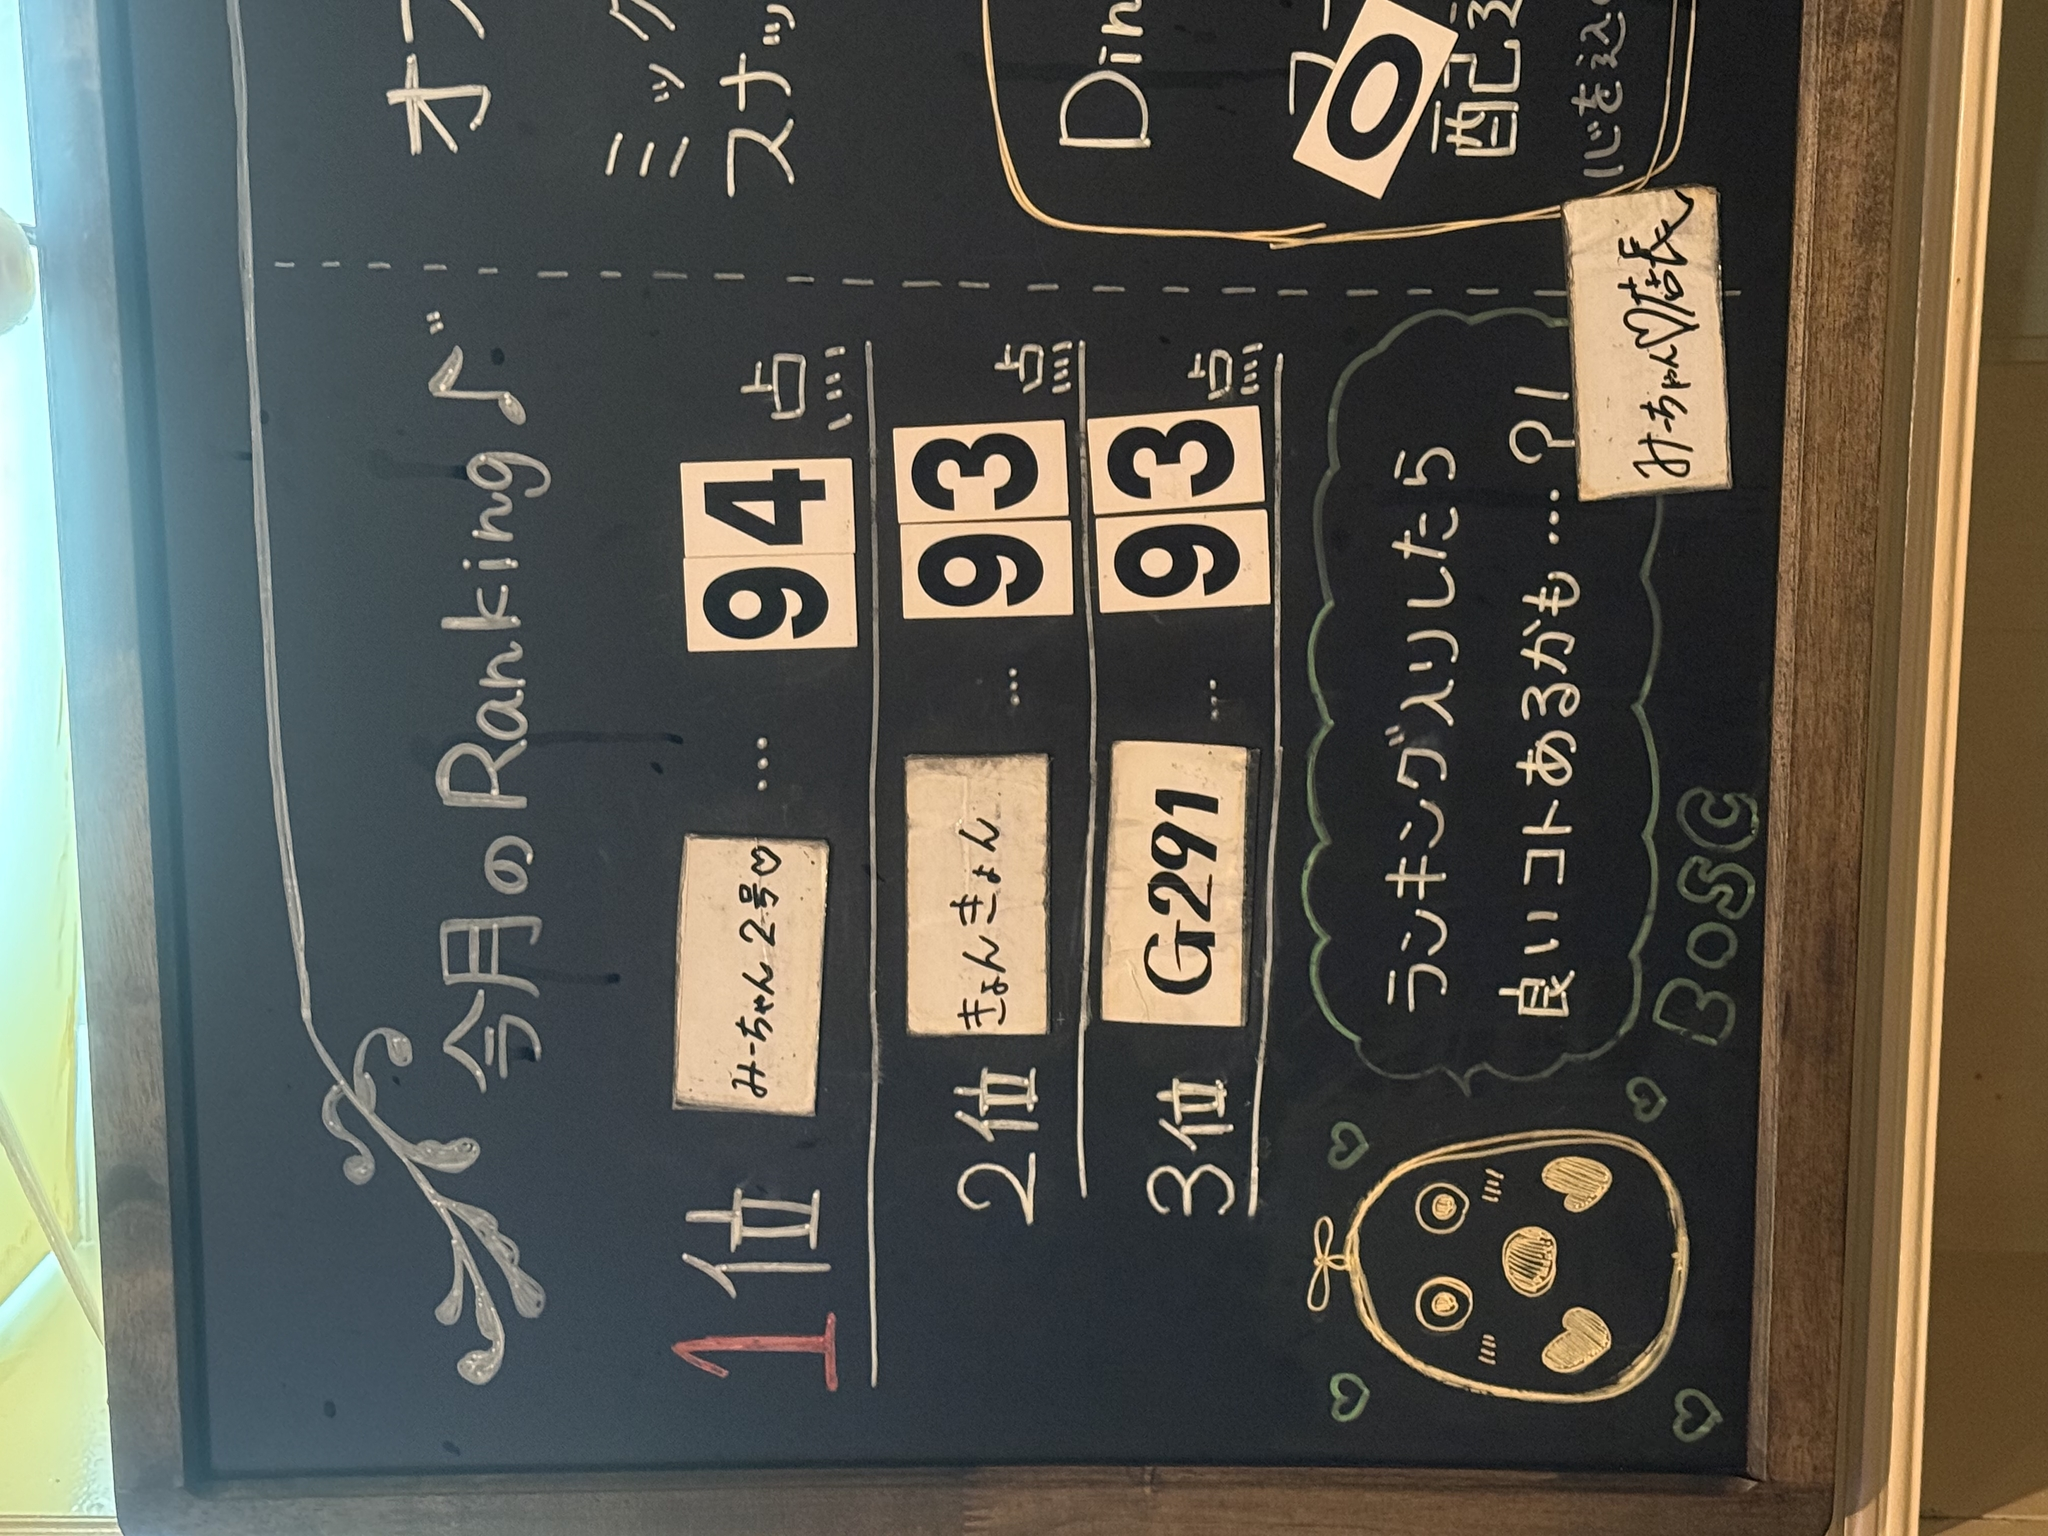 今月のRanking♪
1位 みーちゃん2号♡ … 94点
2位 きょんきょん … 93点
3位 G291 … 93点
ランキング入りしたら
良いコトあるかも…?!
BOSC
オ
ミック
スナッ
Din
0
配
心を込